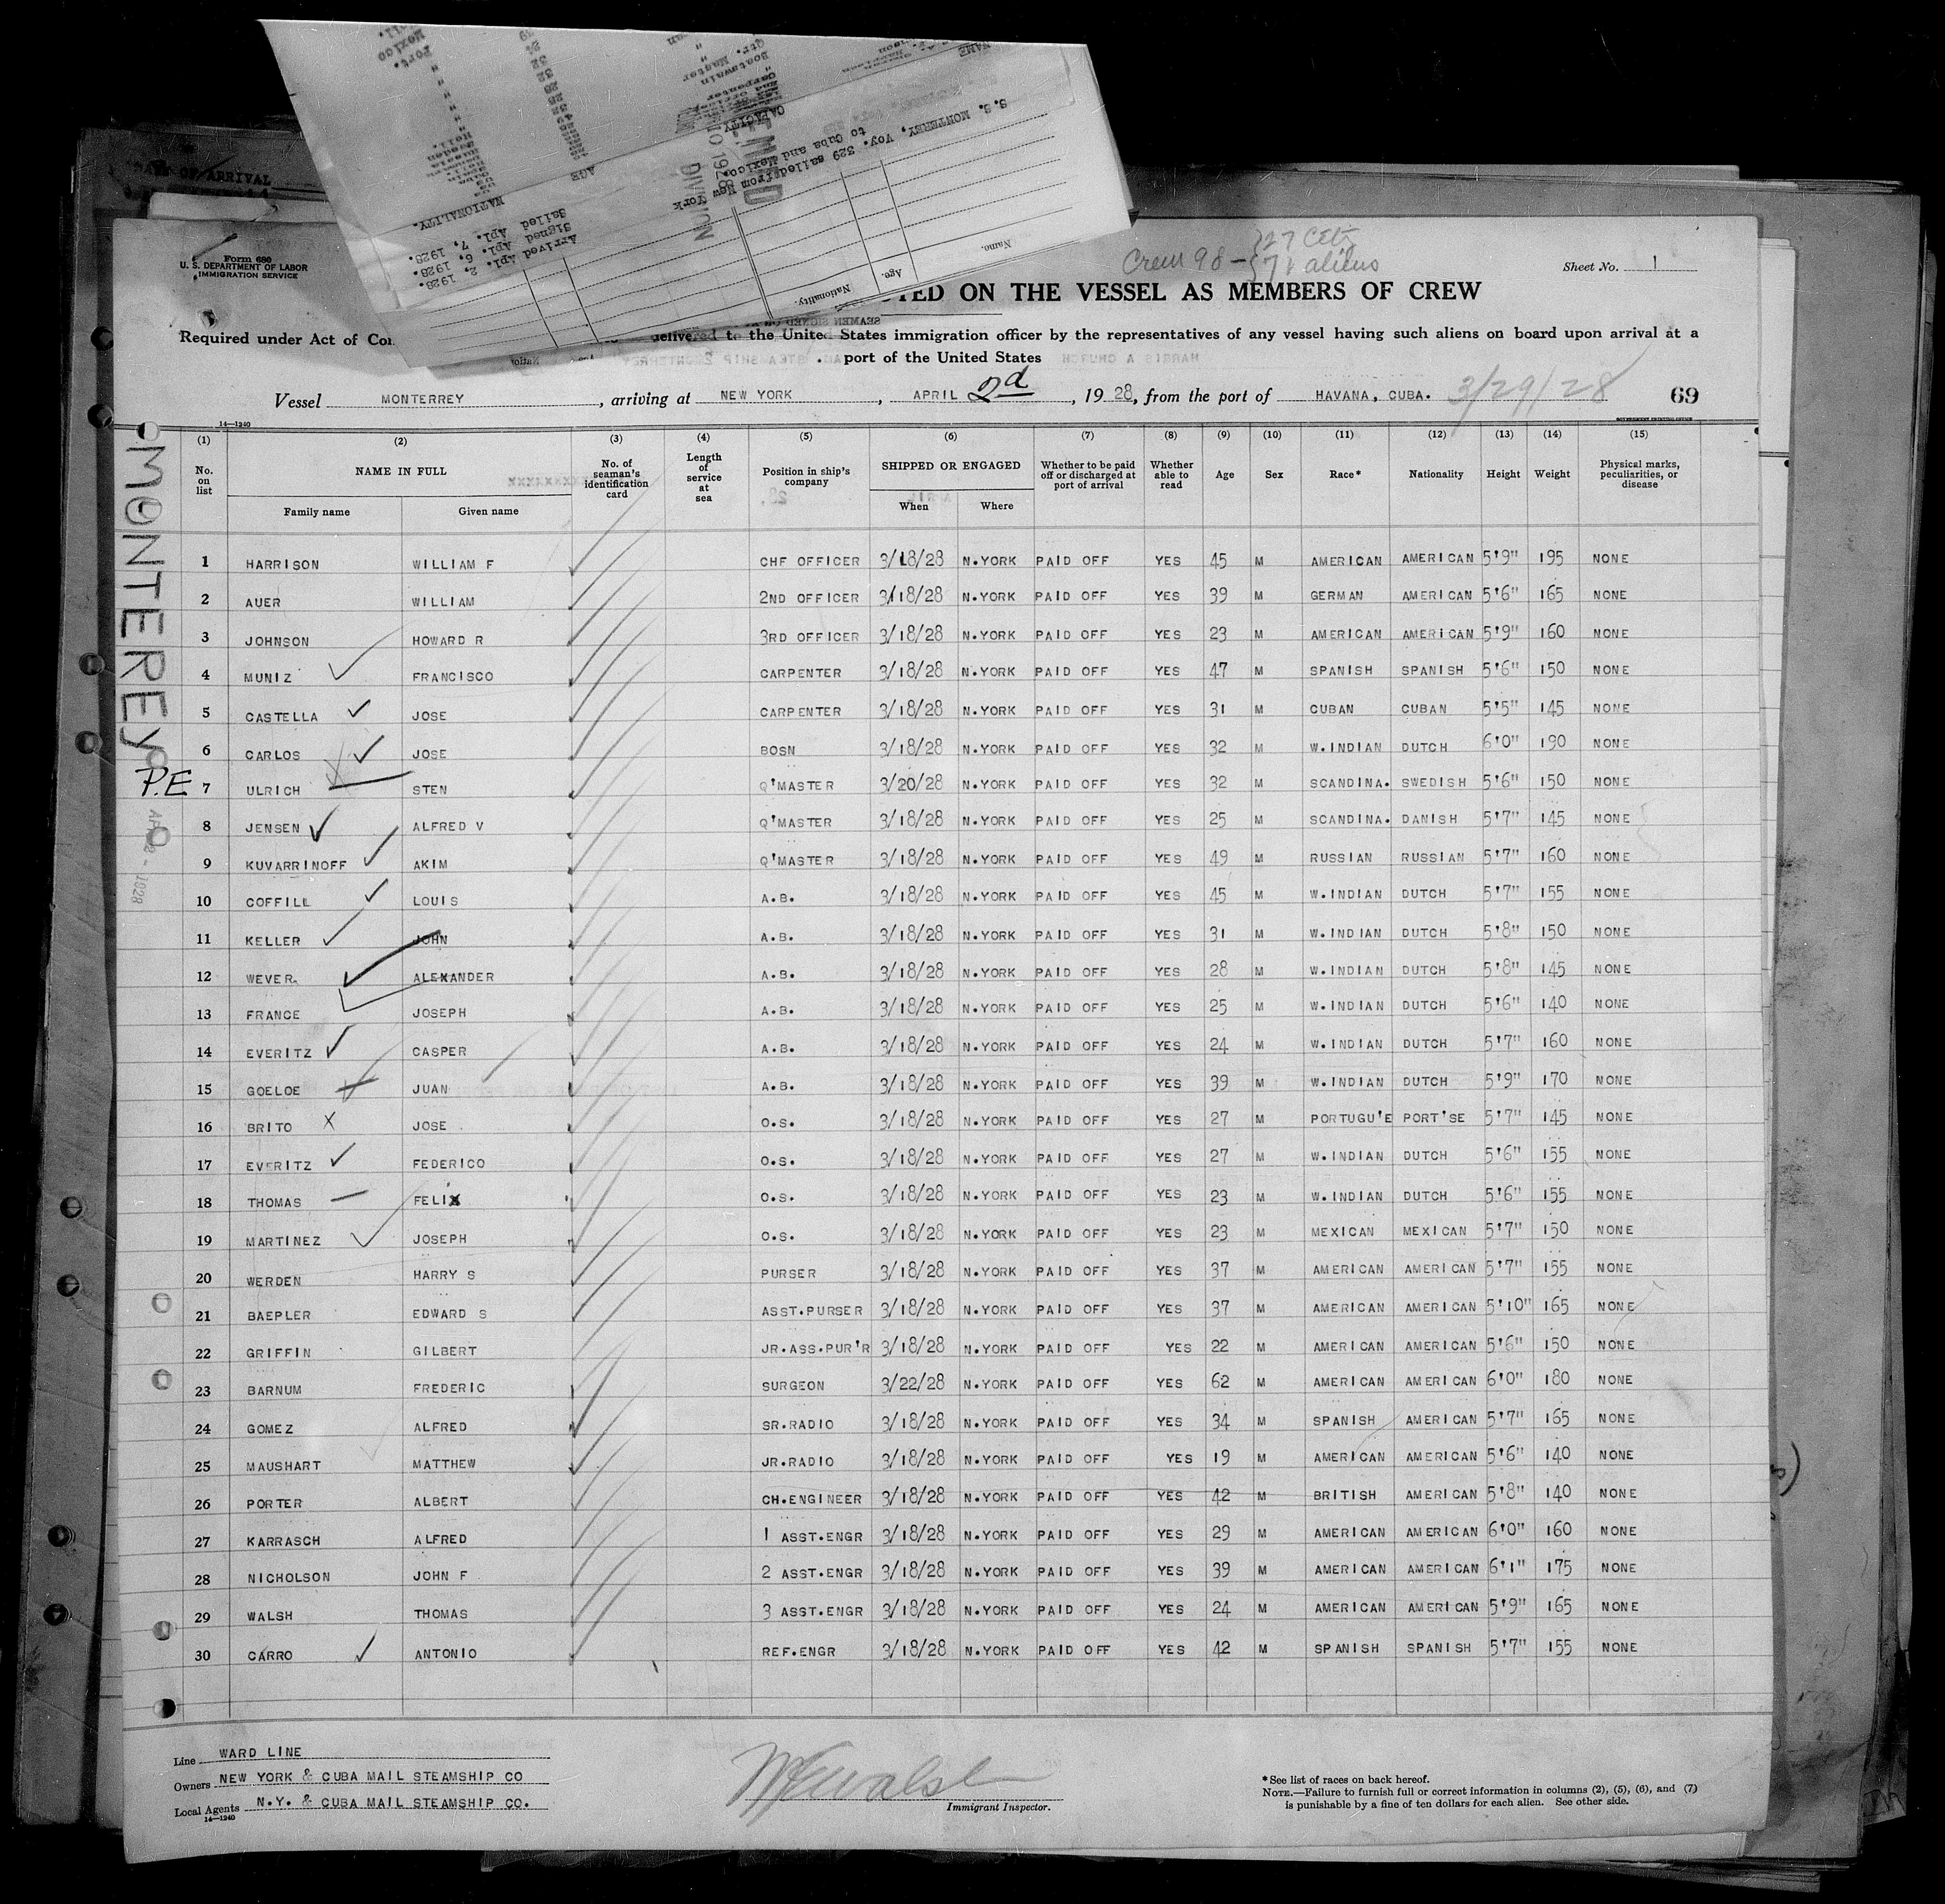 S. S. MONTEREY, Voy. 329 sailed from New York
to Cuba and Mexico.
Arrived Apl. 2, 1928.
Signed Apl. 6, 1928.
Sailed Apl. 7, 1928.
NAME CAPACITY AGE NATIONALITY.
Name. Age. Nationality.
Form 680
U. S. DEPARTMENT OF LABOR
IMMIGRATION SERVICE
Crew 98 - 27 Cit
71 aliens
Sheet No. 1
ON THE VESSEL AS MEMBERS OF CREW
Required under Act of delivered to the United States immigration officer by the representatives of any vessel having such aliens on board upon arrival at a
port of the United States
Vessel MONTERREY, arriving at NEW YORK, APRIL 2nd, 1928, from the port of HAVANA, CUBA. 3/29/28 69
14—1240
(1) (2) (3) (4) (5) (6) (7) (8) (9) (10) (11) (12) (13) (14) (15)
No. on list NAME IN FULL Family name Given name No. of seaman's identification card Length of service at sea Position in ship's company SHIPPED OR ENGAGED When Where Whether to be paid off or discharged at port of arrival Whether able to read Age Sex Race* Nationality Height Weight Physical marks, peculiarities, or disease
MONTEREY
P.E
APR 2 - 1928
1 HARRISON WILLIAM F CHF OFFICER 3/18/28 N.YORK PAID OFF YES 45 M AMERICAN AMERICAN 5'9" 195 NONE
2 AUER WILLIAM 2ND OFFICER 3/18/28 N.YORK PAID OFF YES 39 M GERMAN AMERICAN 5'6" 165 NONE
3 JOHNSON HOWARD R 3RD OFFICER 3/18/28 N.YORK PAID OFF YES 23 M AMERICAN AMERICAN 5'9" 160 NONE
4 MUNIZ FRANCISCO CARPENTER 3/18/28 N.YORK PAID OFF YES 47 M SPANISH SPANISH 5'6" 150 NONE
5 CASTELLA JOSE CARPENTER 3/18/28 N.YORK PAID OFF YES 31 M CUBAN CUBAN 5'5" 145 NONE
6 CARLOS JOSE BOSN 3/18/28 N.YORK PAID OFF YES 32 M W.INDIAN DUTCH 6'0" 190 NONE
7 ULRICH STEN Q'MASTER 3/20/28 N.YORK PAID OFF YES 32 M SCANDINA. SWEDISH 5'6" 150 NONE
8 JENSEN ALFRED V Q'MASTER 3/18/28 N.YORK PAID OFF YES 25 M SCANDINA. DANISH 5'7" 145 NONE
9 KUVARRINOFF AKIM Q'MASTER 3/18/28 N.YORK PAID OFF YES 49 M RUSSIAN RUSSIAN 5'7" 160 NONE
10 COFFILL LOUIS A.B. 3/18/28 N.YORK PAID OFF YES 45 M W.INDIAN DUTCH 5'7" 155 NONE
11 KELLER JOHN A.B. 3/18/28 N.YORK PAID OFF YES 31 M W.INDIAN DUTCH 5'8" 150 NONE
12 WEVER. ALEXANDER A.B. 3/18/28 N.YORK PAID OFF YES 28 M W.INDIAN DUTCH 5'8" 145 NONE
13 FRANCE JOSEPH A.B. 3/18/28 N.YORK PAID OFF YES 25 M W.INDIAN DUTCH 5'6" 140 NONE
14 EVERITZ CASPER A.B. 3/18/28 N.YORK PAID OFF YES 24 M W.INDIAN DUTCH 5'7" 160 NONE
15 GOELOE JUAN A.B. 3/18/28 N.YORK PAID OFF YES 39 M W.INDIAN DUTCH 5'9" 170 NONE
16 BRITO JOSE O.S. 3/18/28 N.YORK PAID OFF YES 27 M PORTUGU'E PORT'SE 5'7" 145 NONE
17 EVERITZ FEDERICO O.S. 3/18/28 N.YORK PAID OFF YES 27 M W.INDIAN DUTCH 5'6" 155 NONE
18 THOMAS FELIX O.S. 3/18/28 N.YORK PAID OFF YES 23 M W.INDIAN DUTCH 5'6" 155 NONE
19 MARTINEZ JOSEPH O.S. 3/18/28 N.YORK PAID OFF YES 23 M MEXICAN MEXICAN 5'7" 150 NONE
20 WERDEN HARRY S PURSER 3/18/28 N.YORK PAID OFF YES 37 M AMERICAN AMERICAN 5'7" 155 NONE
21 BAEPLER EDWARD S ASST.PURSER 3/18/28 N.YORK PAID OFF YES 37 M AMERICAN AMERICAN 5'10" 165 NONE
22 GRIFFIN GILBERT JR.ASS.PUR'R 3/18/28 N.YORK PAID OFF YES 22 M AMERICAN AMERICAN 5'6" 150 NONE
23 BARNUM FREDERIC SURGEON 3/22/28 N.YORK PAID OFF YES 62 M AMERICAN AMERICAN 6'0" 180 NONE
24 GOMEZ ALFRED SR.RADIO 3/18/28 N.YORK PAID OFF YES 34 M SPANISH AMERICAN 5'7" 165 NONE
25 MAUSHART MATTHEW JR.RADIO 3/18/28 N.YORK PAID OFF YES 19 M AMERICAN AMERICAN 5'6" 140 NONE
26 PORTER ALBERT CH.ENGINEER 3/18/28 N.YORK PAID OFF YES 42 M BRITISH AMERICAN 5'8" 140 NONE
27 KARRASCH ALFRED 1 ASST.ENGR 3/18/28 N.YORK PAID OFF YES 29 M AMERICAN AMERICAN 6'0" 160 NONE
28 NICHOLSON JOHN F 2 ASST.ENGR 3/18/28 N.YORK PAID OFF YES 39 M AMERICAN AMERICAN 6'1" 175 NONE
29 WALSH THOMAS 3 ASST.ENGR 3/18/28 N.YORK PAID OFF YES 24 M AMERICAN AMERICAN 5'9" 165 NONE
30 CARRO ANTONIO REF.ENGR 3/18/28 N.YORK PAID OFF YES 42 M SPANISH SPANISH 5'7" 155 NONE
Line WARD LINE
Owners NEW YORK & CUBA MAIL STEAMSHIP CO
Local Agents N.Y. & CUBA MAIL STEAMSHIP CO.
14—1240
Immigrant Inspector.
*See list of races on back hereof.
NOTE.—Failure to furnish full or correct information in columns (2), (5), (6), and (7)
is punishable by a fine of ten dollars for each alien. See other side.